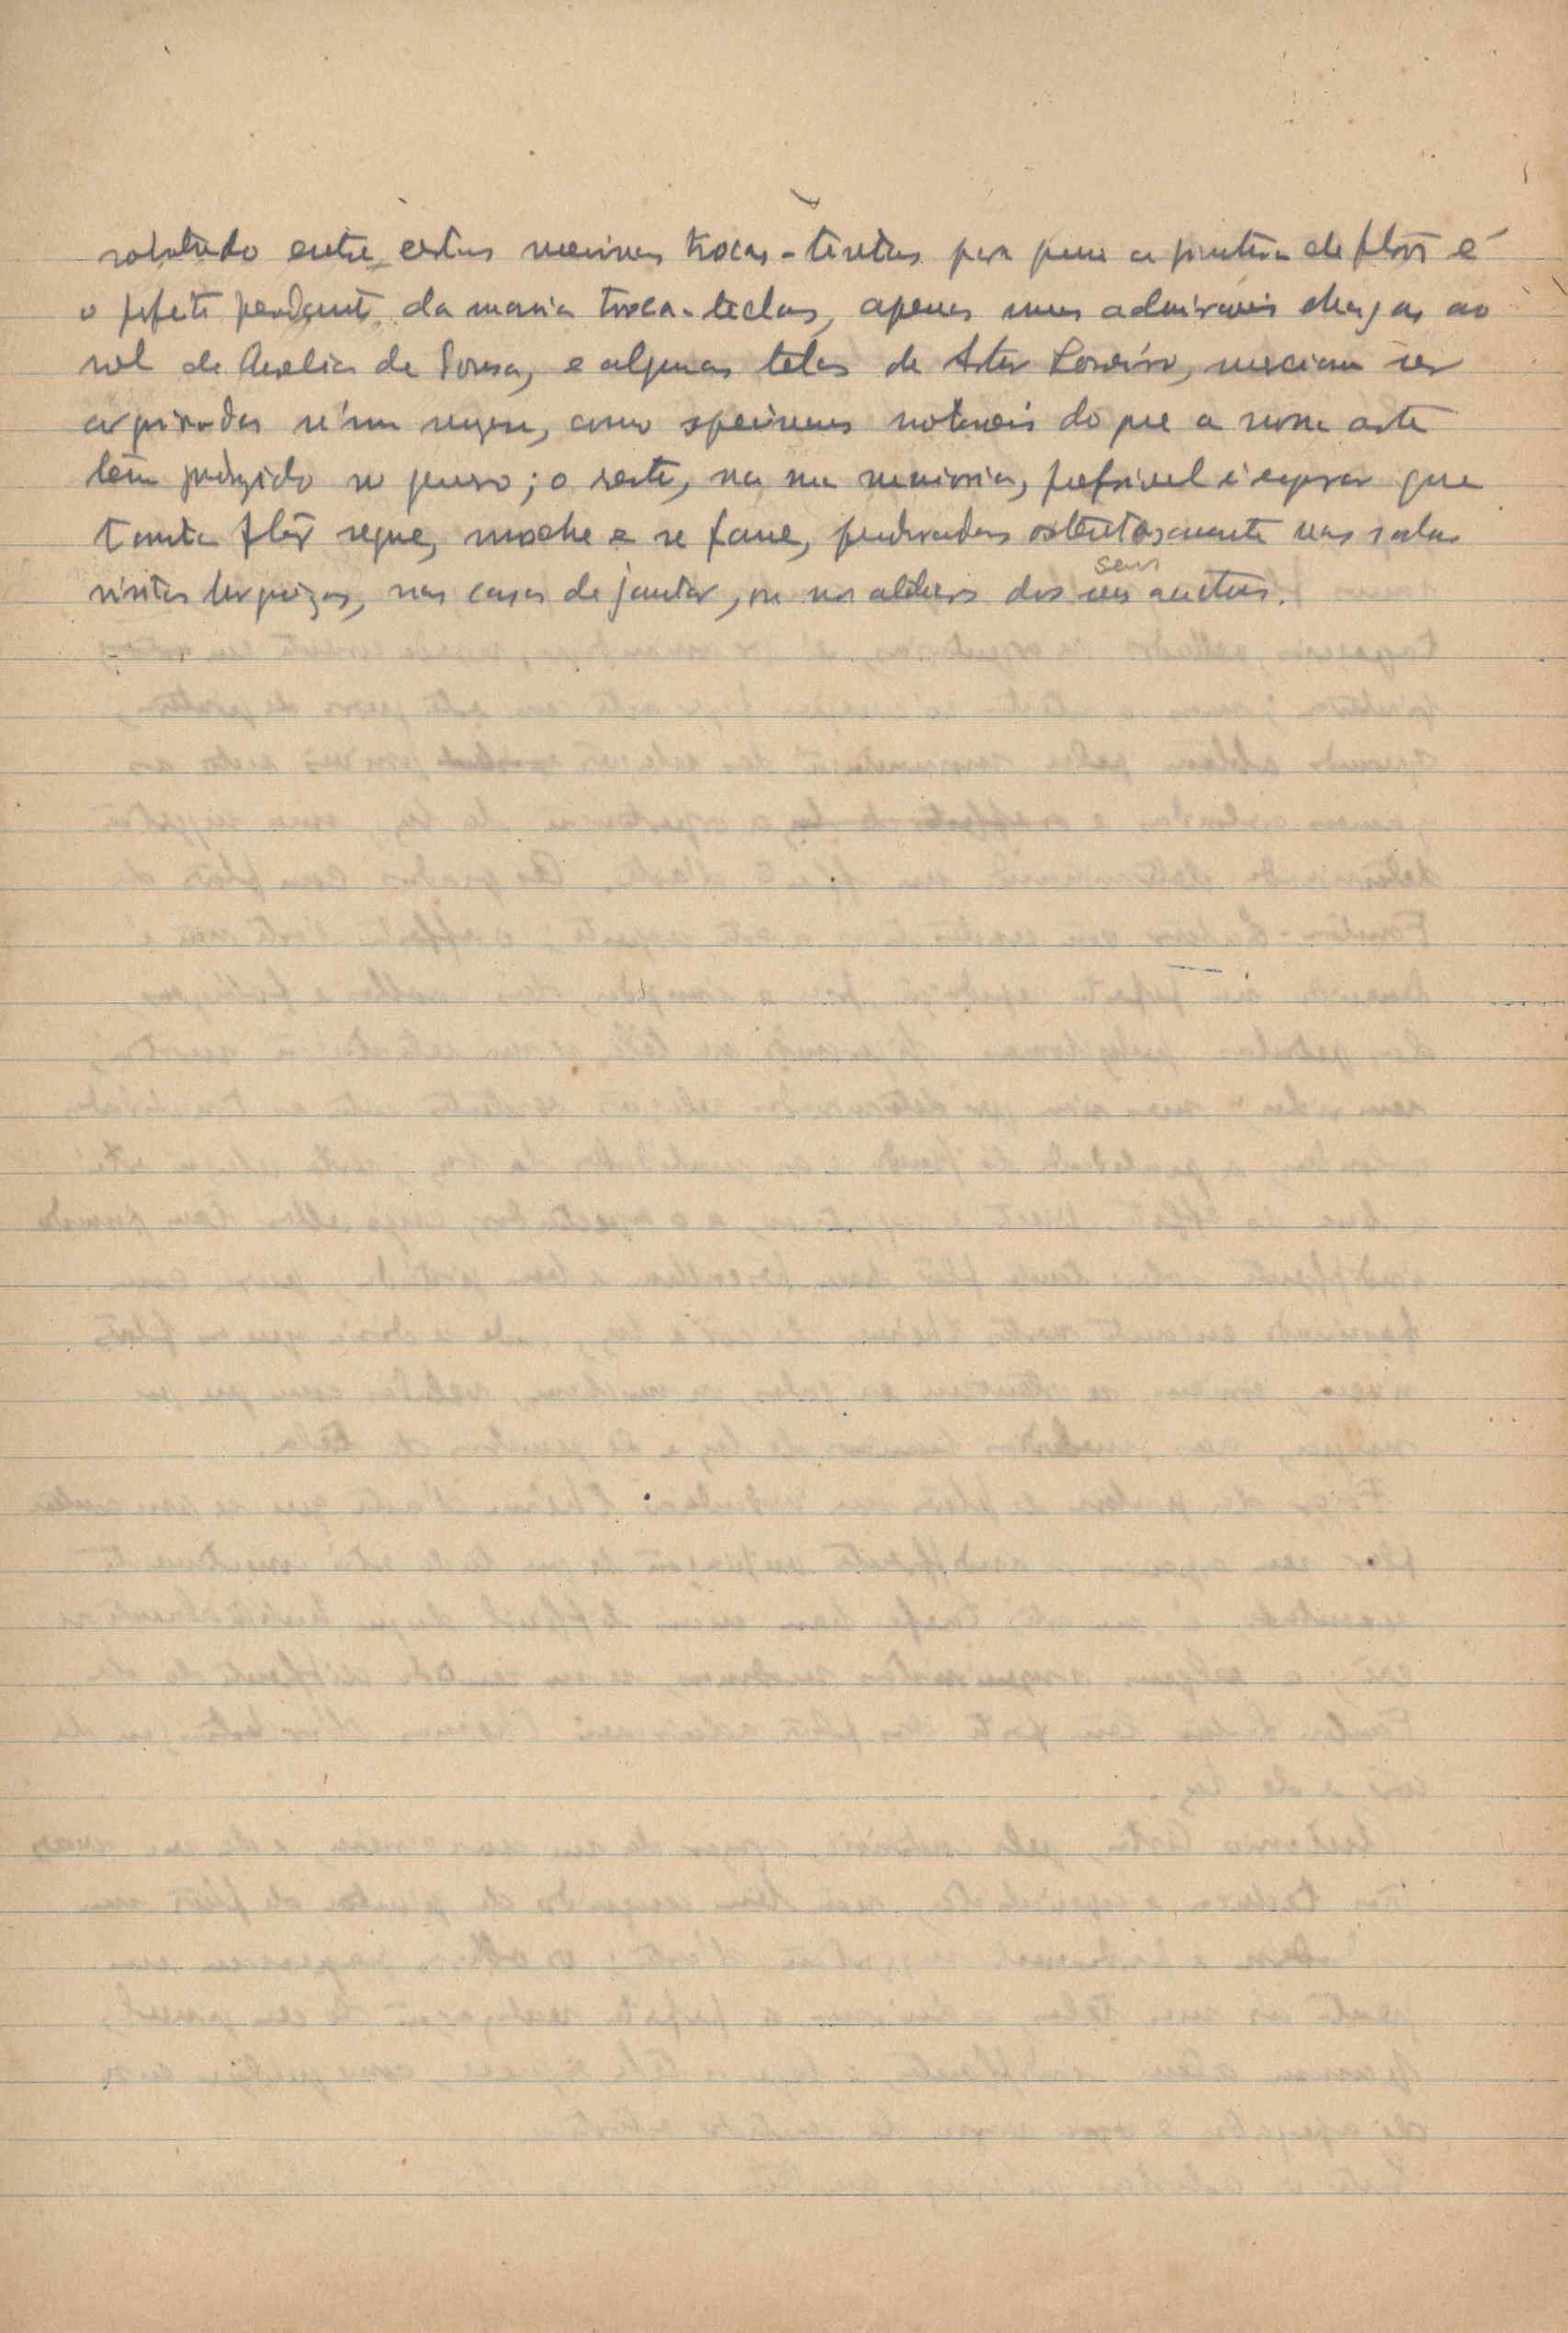 sobretudo entre certas meninas trocas-tintas para quem a pintura de flôr é
o perfeito pendant da mania troca-teclas, apenas umas admiraveis chagas ao
sol de Aurelia de Sousa, e algumas telas de Artur Loureiro, mereciam ser
arquivadas n'um museu, como specimens notaveis do que a nossa arte
tem produzido no genero; o resto, na sua maioria, preferivel é esperar que
tanta flôr seque, murche e se fane, penduradas ostentosamente nas salas
visitas burguezas, nas casas de jantar, ou nos ateliers dos seus auctores.